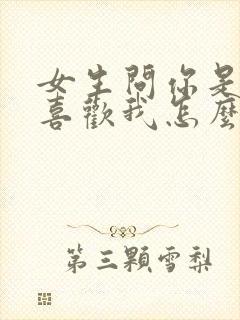 女生問你是
喜歡我怎麼
第三顆雪梨